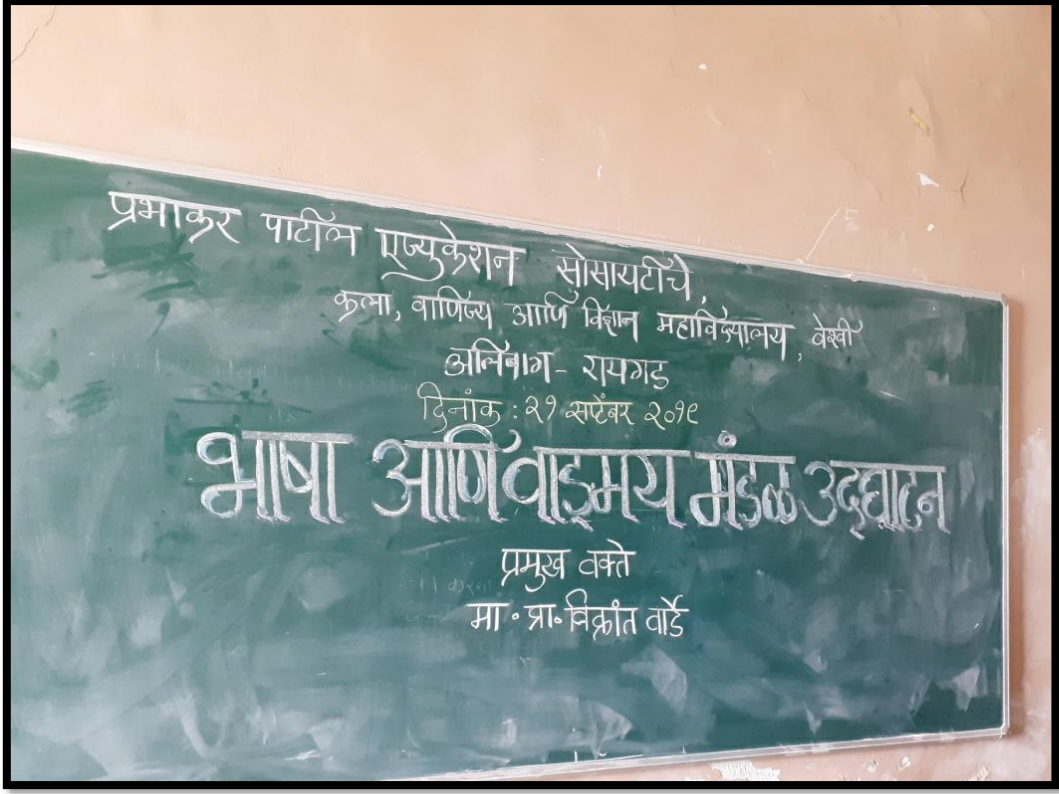 प्रभाकर पाटील एज्युकेशन सोसायटीचे,
कला, वाणिज्य आणि विज्ञान महाविद्यालय, वेश्वी
अलिबाग - रायगड
दिनांक : २१ सप्टेंबर २०१९
भाषा आणि वाङ्मय मंडळ उद्घाटन
प्रमुख वक्ते
मा. प्रा. विक्रांत वार्डे